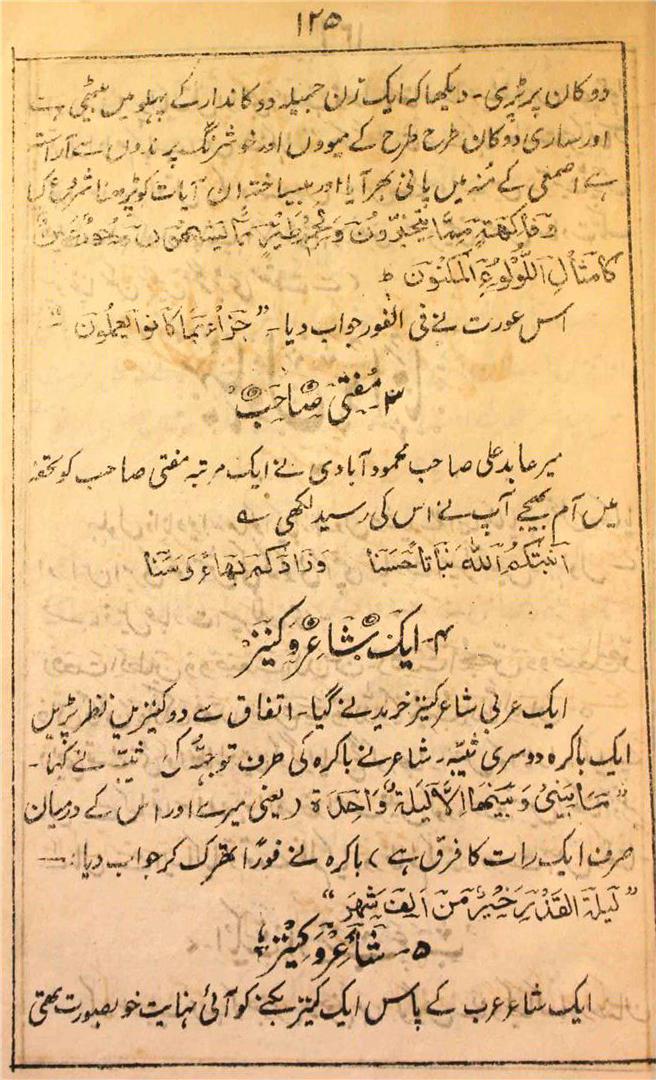 ۱۲۵
دوکان پر پڑی۔ دیکھا کہ ایک زن جمیلہ دوکاندار کے پہلو میں بیٹھی ہے
اور ساری دوکان طرح طرح کے میووں اور خوشرنگ پرندوں سے آراستہ
ہے اصمعی کے منہ میں پانی بھر آیا اور بیساختہ ان آیات کو پڑھنا شروع کیا
وَفَاكِهَةٍ مِمَّا يَتَخَيَّرُونَ وَلَحْمِ طَيْرٍ مِّمَّا يَشْتَهُونَ وَحُورٌ عِينٌ
كَأَمْثَالِ اللُّؤْلُوءِ الْمَكْنُونِ ط
اس عورت نے فی الفور جواب دیا۔ ”جَزَاءً بِمَا كَانُوا يَعْمَلُونَ“
۳۔ مُفتی صاحب
میر عابد علی صاحب محمود آبادی نے ایک مرتبہ مفتی صاحب کو تحفہ
میں آم بھیجے آپ نے اس کی رسید لکھی ے
اَنْبَتَكُمُ اللّٰهُ نَبَاتًا حَسَنًا وَزَادَكُمْ بَهَاءً وَسَنًا
۴۔ ایک شاعر و کنیز
ایک عربی شاعر کنیز خریدنے گیا۔ اتفاق سے دو کنیزیں نظر پڑیں
ایک باکرہ دوسری ثیّبہ۔ شاعر نے باکرہ کی طرف توجّہ کی ثیّبہ نے کہا۔
”مَا بَيْنِي وَبَيْنَهَا اِلَّا لَيْلَةٌ وَاحِدَة (یعنی میرے اور اس کے درمیان
صرف ایک رات کا فرق ہے) باکرہ نے فوراً پھڑک کر جواب دیا :—
”لَيْلَةُ الْقَدْرِ خَيْرٌ مِنْ اَلْفِ شَهْرٍ“
۵۔ شاعر و کنیز
ایک شاعر عرب کے پاس ایک کنیز بکنے کو آئی نہایت خوبصورت تھی